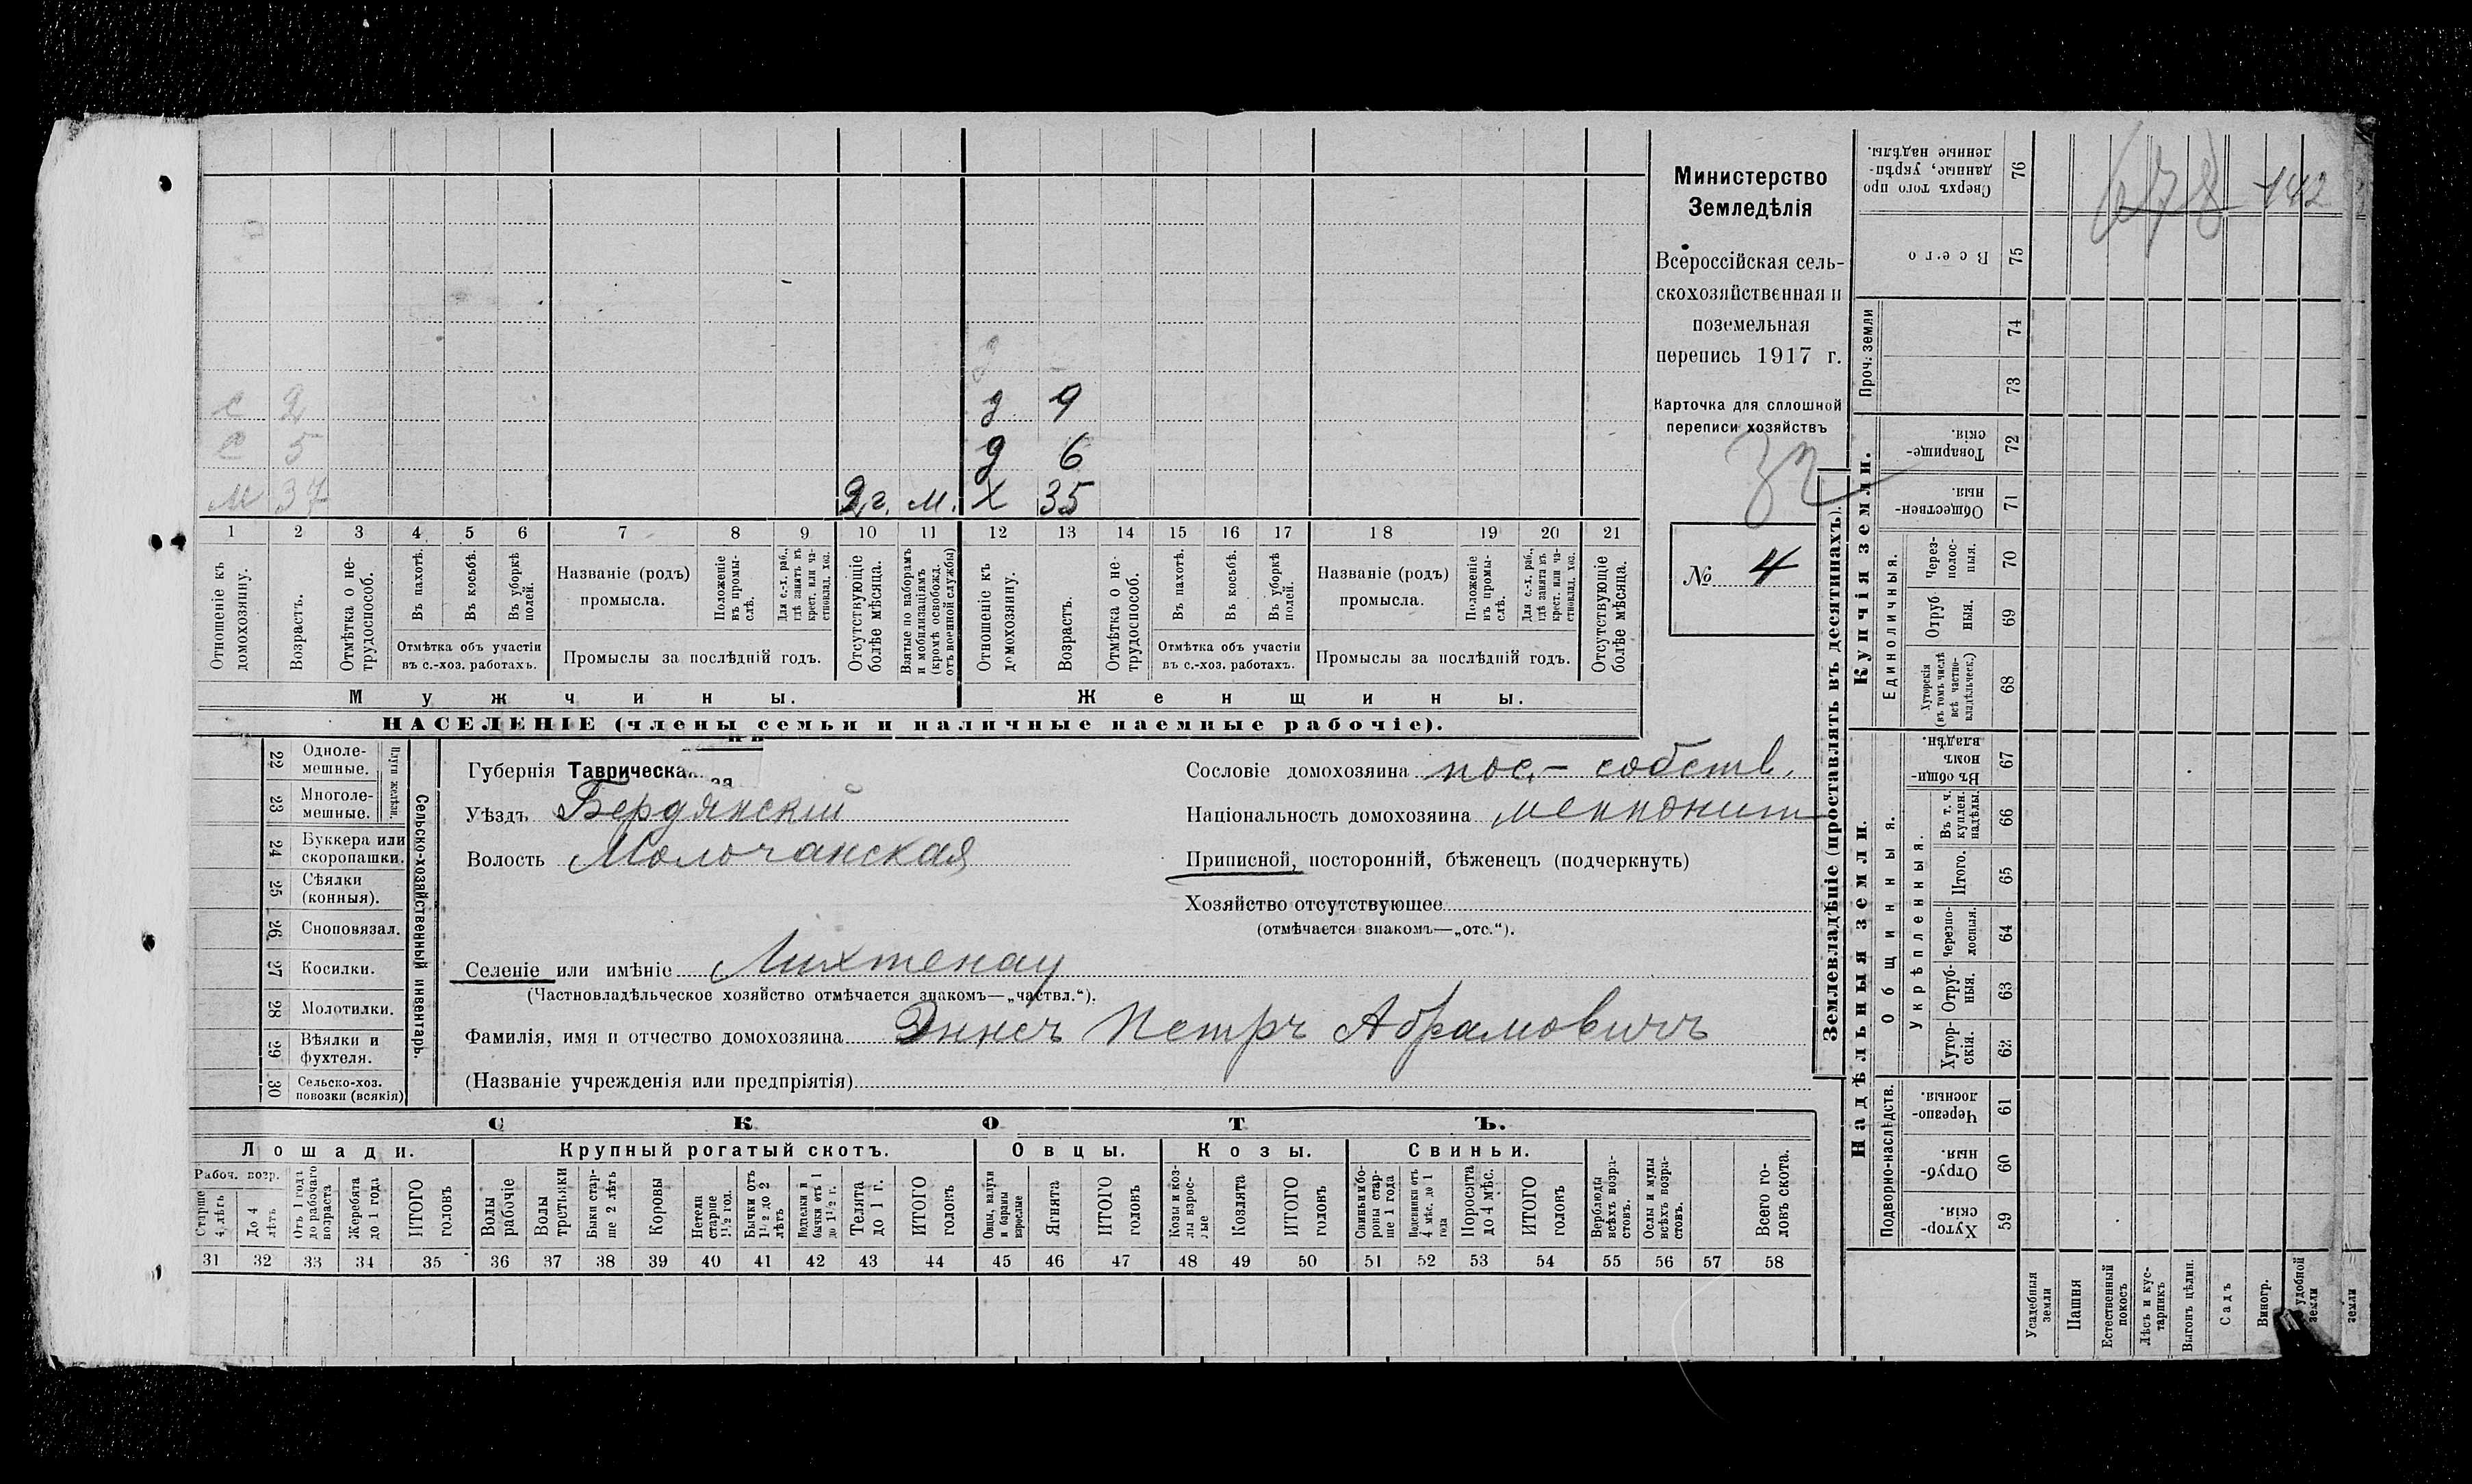 Министерство
Земледѣлія
Всероссійская сель-
скохозяйственная и
поземельная
перепись 1917 г.
Карточка для сплошной
переписи хозяйствъ
32
№ 4
д
с 2 д 9
с 5 д 6
м 37 2 г. м. х 35
1 2 3 4 5 6 7 8 9 10 11 12 13 14 15 16 17 18 19 20 21
Отношеніе къ домохозяину.
Возрастъ.
Отмѣтка о не-трудоспособ.
Въ пахотѣ.
Въ косьбѣ.
Въ уборкѣ полей.
Отмѣтка объ участіи
въ с.-хоз. работахъ.
Названіе (родъ)
промысла.
Положеніе въ промы-слѣ.
Для с.-х. раб., гдѣ занятъ въ крест. или ча-стновлад. хоз.
Промыслы за послѣдній годъ.
Отсутствующіе болѣе мѣсяца.
Взятые по наборамъ и мобилизаціямъ (кромѣ освобожд. отъ военной службы)
Отношеніе къ домохозяину.
Возрастъ.
Отмѣтка о не-трудоспособ.
Въ пахотѣ.
Въ косьбѣ.
Въ уборкѣ полей.
Отмѣтка объ участіи
въ с.-хоз. работахъ.
Названіе (родъ)
промысла.
Положеніе въ промы-слѣ.
Для с.-х. раб., гдѣ занята въ крест. или ча-стновлад. хоз.
Промыслы за послѣдній годъ.
Отсутствующіе болѣе мѣсяца.
Мужчины.
Женщины.
НАСЕЛЕНІЕ (члены семьи и наличные наемные рабочіе).
Сельско-хозяйственный инвентарь.
Плуги желѣзн.
22 Одноле-мешные.
23 Многоле-мешные.
24 Буккера или скоропашки.
25 Сѣялки (конныя).
26 Сноповязал.
27 Косилки.
28 Молотилки.
29 Вѣялки и фухтеля.
30 Сельско-хоз. повозки (всякія)
Губернія Таврическая
Уѣздъ Бердянскій
Волость Молочанская
Сословіе домохозяина пос.- собств.
Національность домохозяина меннонит
Приписной, посторонній, бѣженецъ (подчеркнуть)
Хозяйство отсутствующее
(отмѣчается знакомъ—„отс.“).
Селеніе или имѣніе Лихтенау
(Частновладѣльческое хозяйство отмѣчается знакомъ—„частвл.“).
Фамилія, имя и отчество домохозяина Эннсъ Петръ Абрамовичъ
(Названіе учрежденія или предпріятія)
СКОТЪ.
Лошади. Крупный рогатый скотъ. Овцы. Козы. Свиньи.
Рабоч. возр.
Старше 4 лѣтъ
До 4 лѣтъ
Отъ 1 года до рабочаго возраста
Жеребята до 1 года
ИТОГО головъ
Волы рабочіе
Волы третьяки
Быки стар-ше 2 лѣтъ
Коровы
Нетели старше 1½ год.
Бычки отъ 1½ до 2 лѣтъ
Подтелки и бычки отъ 1 до 1½ г.
Телята до 1 г.
ИТОГО головъ
Овцы, валухи и бараны взрослые
Ягнята
ИТОГО головъ
Козы и коз-лы взрос-лые
Козлята
ИТОГО головъ
Свиньи и бо-ровы стар-ше 1 года
Подсвинки отъ 4 мѣс. до 1 года
Поросята до 4 мѣс.
ИТОГО головъ
Верблюды всѣхъ возра-стовъ.
Ослы и мулы всѣхъ возра-стовъ.
Всего го-ловъ скота.
31 32 33 34 35 36 37 38 39 40 41 42 43 44 45 46 47 48 49 50 51 52 53 54 55 56 57 58
Землевладѣніе (проставлять въ десятинахъ).
Надѣльныя земли.
Купчія земли.
Проч. земли
Подворно-наслѣдств.
Общинныя.
Укрѣпленныя.
Единоличныя.
Сверхъ того про-данные, укрѣп-ленные надѣлы. 76
Всего 75
74
73
Товарище-скія. 72
Обществен-ныя. 71
Через-полос-ныя. 70
Отруб-ныя. 69
Хуторскія (въ томъ числѣ всѣ частно-владѣльческ.) 68
Въ общи-номъ владѣн. 67
Въ т. ч. куплен. надѣлы. 66
Итого. 65
Черезпо-лосныя. 64
Отруб-ныя. 63
Хутор-скія. 62
Черезпо-лосныя. 61
Отруб-ныя. 60
Хутор-скія. 59
Усадебныя земли
Пашня
Естественный покосъ
Лѣсъ и кус-тарникъ
Выгонъ цѣлин.
Садъ
Виногр.
удобной земли
земли
678 142